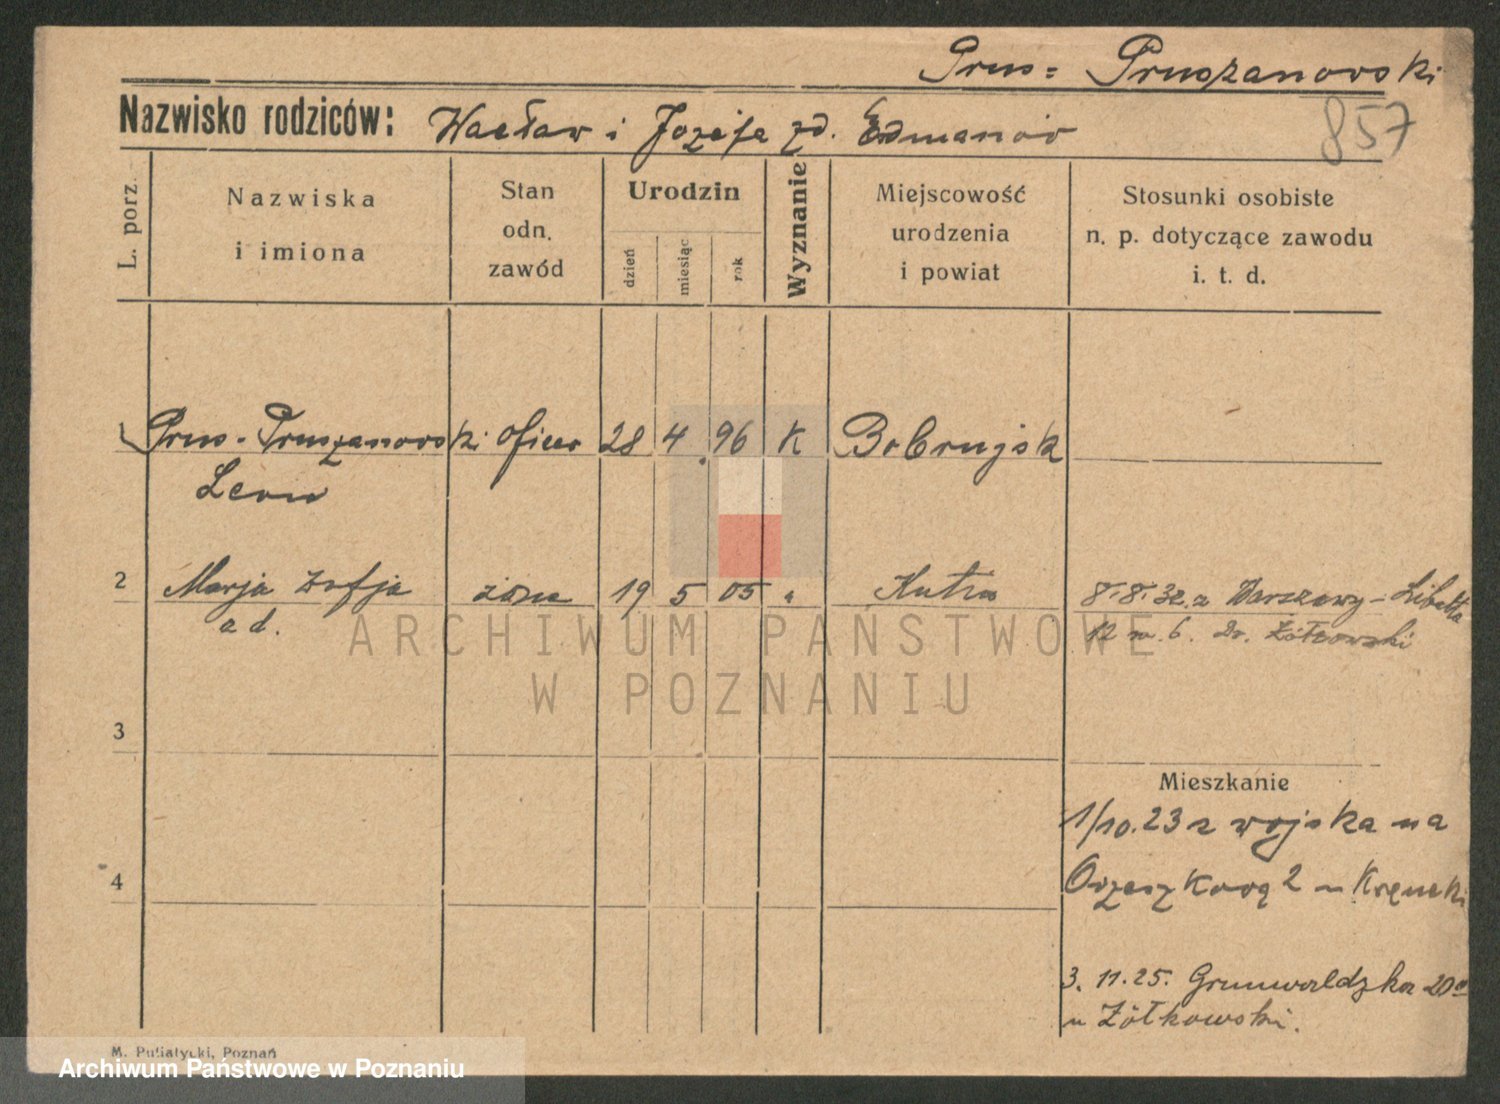 Prus= Pruszanowski
Nazwisko rodziców: Wacław i Józefa zd. Erdmanów
857
L. porz.
Nazwiska
i imiona
Stan
odn.
zawód
Urodzin
dzień
miesiąc
rok
Wyznanie
Miejscowość
urodzenia
i powiat
Stosunki osobiste
n. p. dotyczące zawodu
i. t. d.
1 Prus-Pruszanowski oficer 28 4. 96 K Bobrujsk
Leon
2 Marja Zofja żona 19 5 05 " 8.8.32. z Warszawy - Libelta
12 m. 6. Dr. Żółkowski
ARCHIWUM PAŃSTWOWE
W POZNANIU
3
Mieszkanie
1/10.23 z wojska na
4
Orzeszkową 2 u
3. 11.25. Grunwaldzka
u Żółkowski.
M. Putiatycki, Poznań
Archiwum Państwowe w Poznaniu